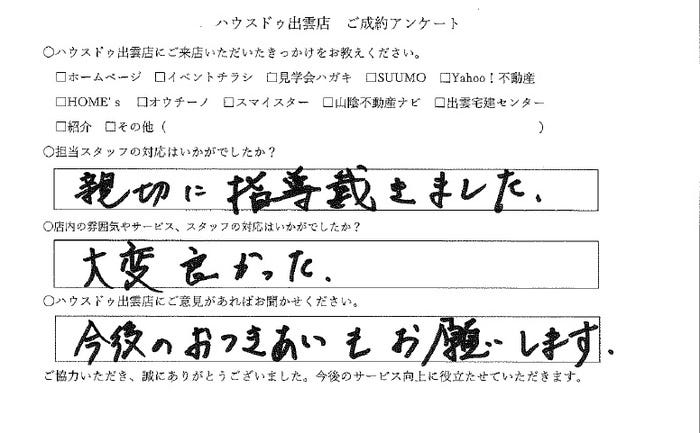 ハウスドゥ出雲店　ご成約アンケート
○ハウスドゥ出雲店にご来店いただいたきっかけをお教えください。
□ホームページ　□イベントチラシ　□見学会ハガキ　□SUUMO　□Yahoo！不動産
□HOME's　□オウチーノ　□スマイスター　□山陰不動産ナビ　□出雲宅建センター
□紹介　□その他（　　　　　　　　　　　　　　　　　　　　　　　　　　）
○担当スタッフの対応はいかがでしたか？
親切に指導戴きました.
○店内の雰囲気やサービス、スタッフの対応はいかがでしたか？
大変良かった.
○ハウスドゥ出雲店にご意見があればお聞かせください。
今後のおつきあいもお願いします.
ご協力いただき、誠にありがとうございました。今後のサービス向上に役立たせていただきます。